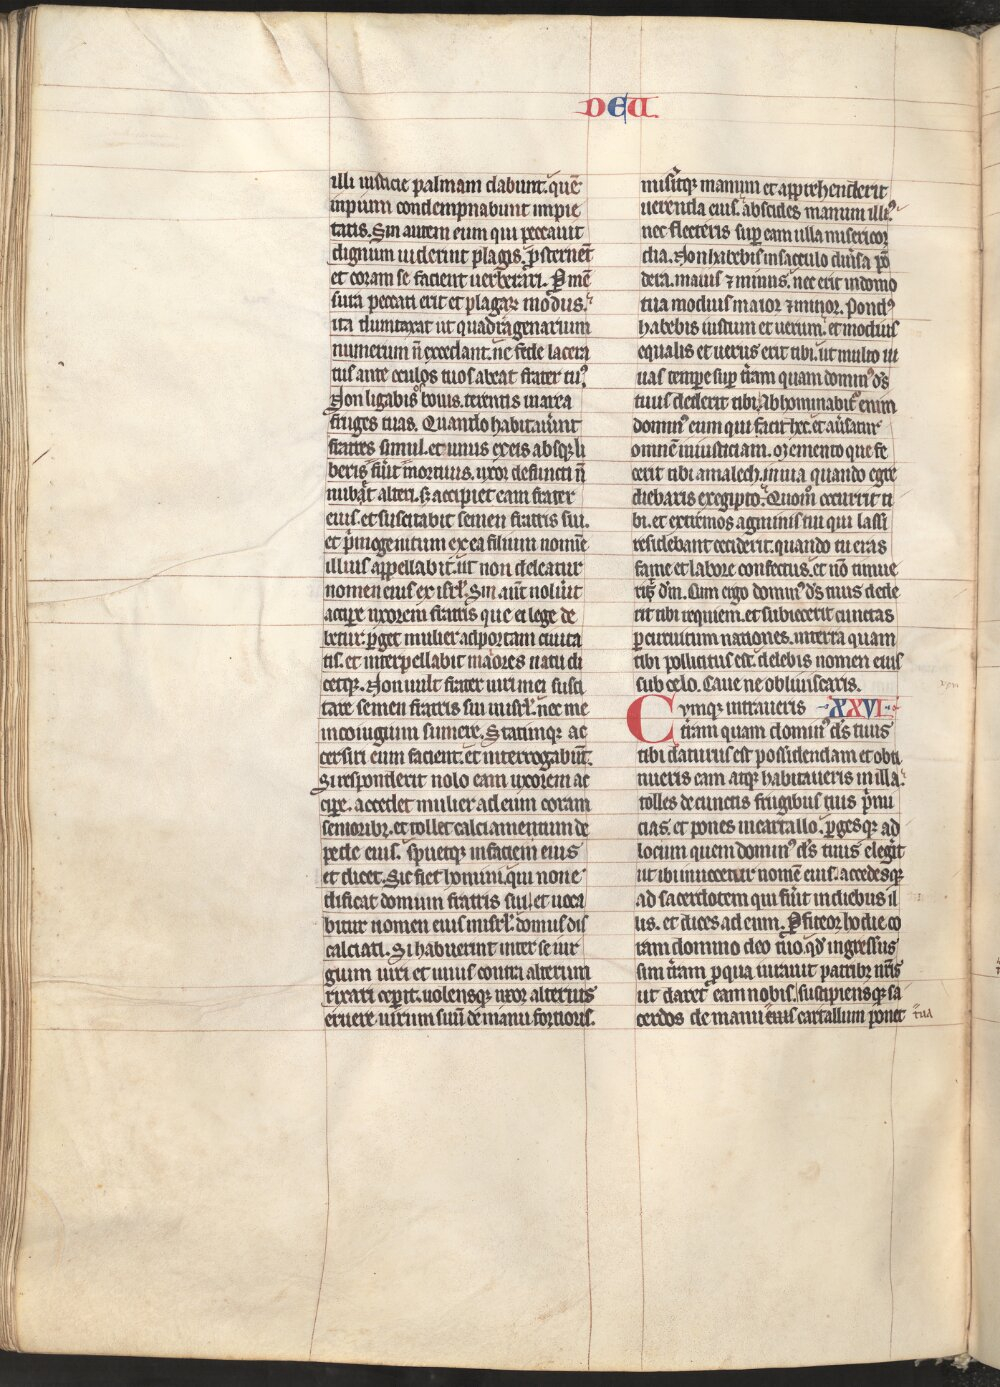 DEU
illi iusticie palmam dabunt. quē
inpium condempnabunt impie
tatis. Sin autem eum qui peccauit
dignum uiderint plagis. p̄sternent
et coram se facient uerberari. P̱ mē
sura peccati erit et plagaꝝ modus.
ita dumtaxat ut quadragenarium
numerum ñ excedant. ne fede lacera
tus ante oculos tuos abeat frater tuꝰ.
Non ligabis os bouis. terentis in area
fruges tuas. Quando habitau̾int
fratres simul. et unus ex eis absqꝫ li
beris fu̾it mortuus. uxor defuncti ñ
nub&t alteri. sꝫ accipiet eam frater
eius. et suscitabit semen fratris sui.
et p̾mogenitum ex ea filium nomīe
illius appellabit. ut non deleatur
nomen eius ex isrl̄. Sin aūt nolu̾it
accip̾e uxorem fratris que ei lege de
betur. ꝑget mulier ad portam ciuita
tis. et interpellabit maiores natu di
cetqꝫ. Non uult frater uiri mei susci
tare semen fratris sui in isrl̄. nec me
in coiugium sumere. Statimqꝫ ac
cersiri eum facient. et interrogabūt.
Si responderit nolo eam uxorem ac
cip̾e. accedet mulier ad eum coram
senioribꝫ. et tollet calciamentum de
pede eius. spuetqꝫ in faciem eius
et dicet. Sic fiet homini. qui non e
dificat domum fratris sui. et uoca
bitur nomen eius in isrl̄. domus dis
calciati. Si habuerint inter se iur
gium uiri et unus contra alterum
rixari cep̾it. uolensqꝫ uxor alterius
eruere uirum suū de manu fortioris.
mis̾itqꝫ manum et apprehenderit
uerenda eius. abscides manum illiꝰ.
nec flecteris sup̾ eam ulla misericor
dia. Non habebis in sacculo diu̾sa pō
dera. maius ⁊ minus. nec erit in domo
tua modius maior ⁊ minor. Pondꝰ
habebis iustum et uerum. et modius
equalis et uerus erit tibi. ut multo ui
uas tempe sup̾ t̾ram quam dominꝰ ds̄
tuus dederit tibi. Abhominabit̾ enim
dominꝰ eum qui facit hec. et au̾satur
omnē iniusticiam. Memento que fe
cerit tibi amalech. in uia quando egre
diebaris ex egipto. Quom̊ occurrit ti
bi. et extremos agminis tui qui lassi
residebant ceciderit. quando tu eras
fame et labore confectus. et nō timue
rit dm̄. Cum ergo dominꝰ ds̄ tuus dede
rit tibi requiem. et subiecerit cunctas
ꝑ circuitum nationes. in terra quam
tibi pollicitus est. delebis nomen eius
sub celo. Caue ne obliuiscaris.
Cvmqꝫ intraueris XXVI
t̾ram quam dominꝰ ds̄ tuus
tibi daturus est possidendam et obti
nueris eam atqꝫ habitaueris in illa.
tolles de cunctis frugibus tuis p̾mi
cias. et pones in cartallo. ꝑgesqꝫ ad
locum quem dominꝰ ds̄ tuus eleg̾it
ut ibi inuocetur nomē eius. accedesqꝫ
ad sacerdotem qui fu̾it in diebus il
lis. et dices ad eum. Ꝓfiteor hodie co
ram domino deo tuo. qd̾ ingressus
sim t̾ram ꝓ qua iurauit patribꝫ nr̄is
ut daret eam nobis. suscipiensqꝫ sa
cerdos de manu eius cartallum ponet
tua